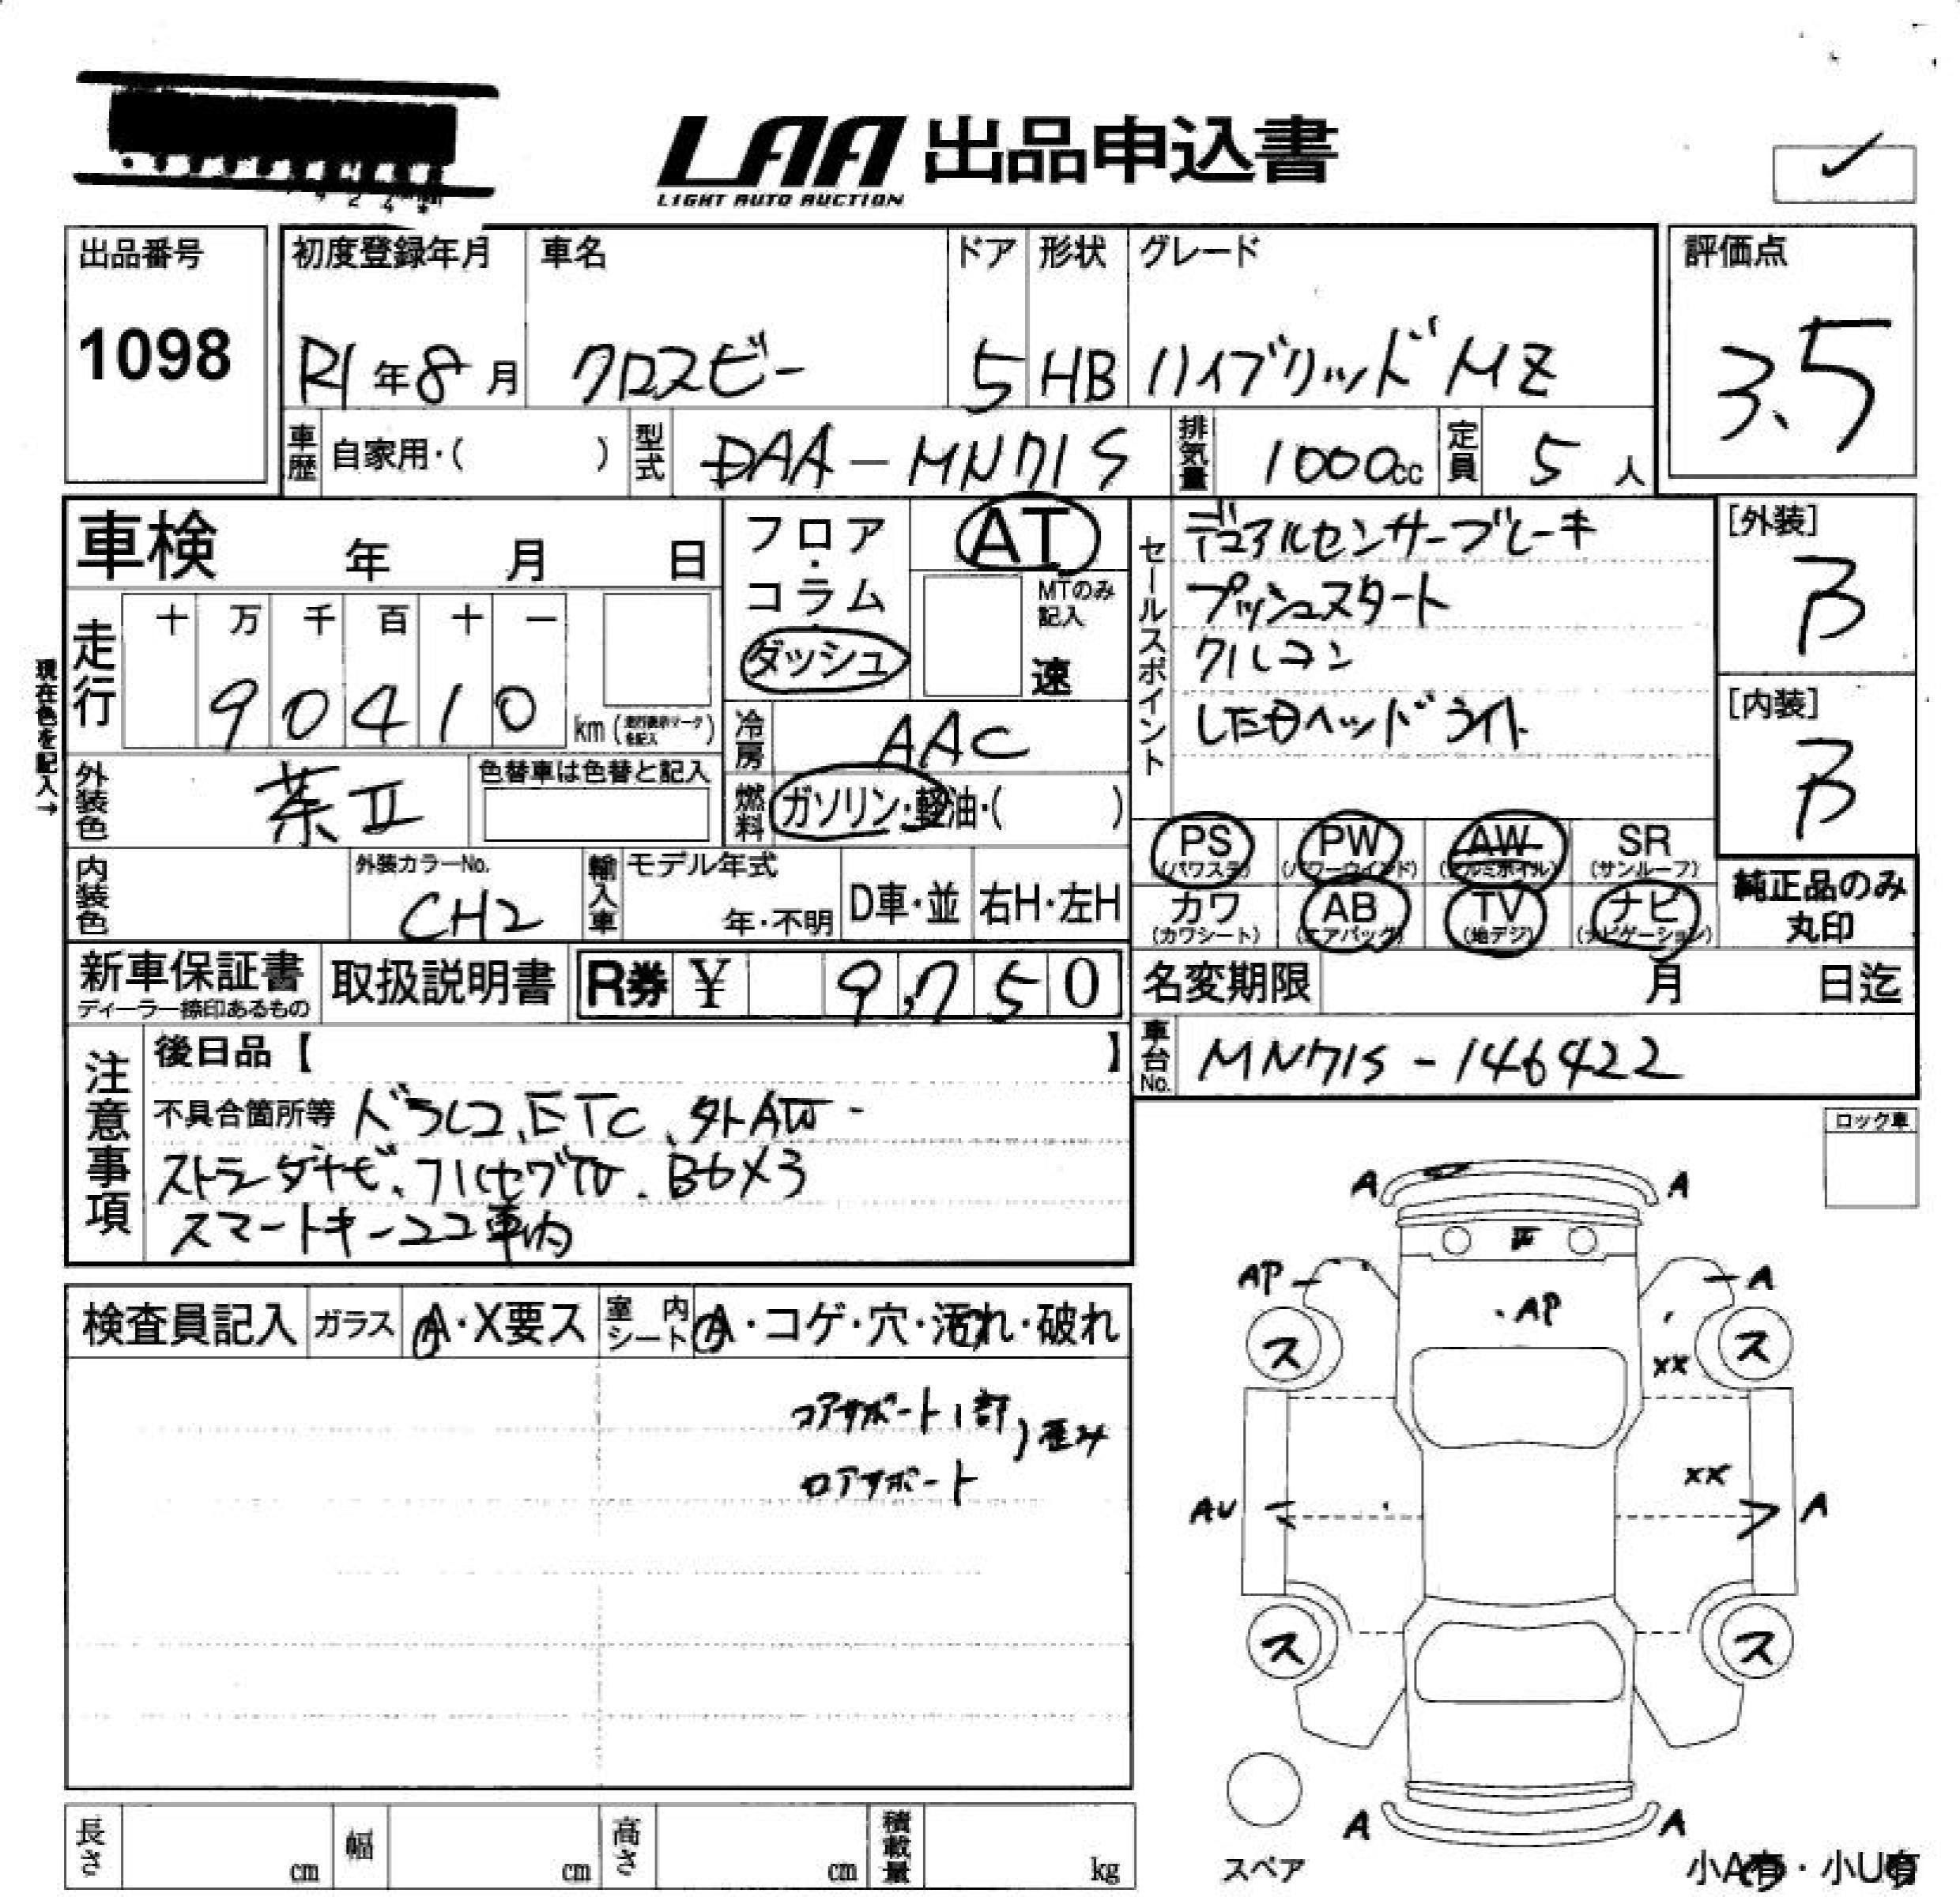 LAA 出品申込書
LIGHT AUTO AUCTION
出品番号
1098
初度登録年月
R1年8月
車名
クロスビー
ドア
5
形状
HB
グレード
ハイブリッド MZ
評価点
3.5
車歴 自家用・( )
型式 DAA-MN71S
排気量 1000cc
定員 5人
車検 年 月 日
フロア・コラム・ダッシュ
AT
MTのみ記入
速
セールスポイント
デュアルセンサーブレーキ
プッシュスタート
クルコン
LEDヘッドライト
[外装]
B
[内装]
B
現在色を記入→
走行
十 万 千 百 十 一
90410 km
冷房 AAC
外装色 茶II
色替車は色替と記入
燃料 ガソリン・軽油・( )
PS (パワステ)
PW (パワーウインド)
AW (アルミホイル)
SR (サンルーフ)
カワ (カワシート)
AB (エアバック)
TV (地デジ)
ナビ (ナビゲーション)
純正品のみ丸印
内装色
外装カラーNo.
CH2
輸入車
モデル年式
年・不明
D車・並
右H・左H
新車保証書
ディーラー捺印あるもの
取扱説明書
R券 ¥ 9,750
名変期限 月 日迄
車台No. MN71S-146422
注意事項
後日品【 】
不具合箇所等 ドラレコ、ETC、外AW
ストラーダナビ、フルセグTV、
スマートキーココ車内
ロック車
検査員記入
ガラス A・X要ス
室内シート A・コゲ・穴・汚れ・破れ
コアサポート1部
歪み
ロアサポート
A
A
AP
A
AP
ス
ス
XX
XX
AU
A
ス
ス
A
A
スペア
小A有・小U有
長さ cm
幅 cm
高さ cm
積載量 kg